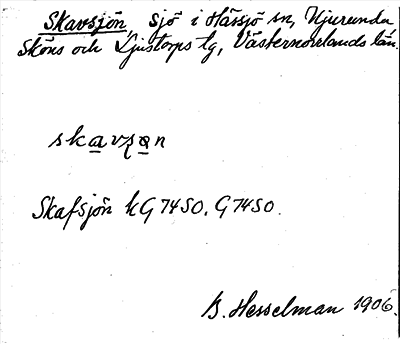 Skavsjön, sjö i Hässjö sn, Njurunda
Sköns och Ljustorps tg, Västernorrlands län.
skavʂɷn
Skafsjön k G 74 SO. G 74 SO.
B. Hesselman 1906.